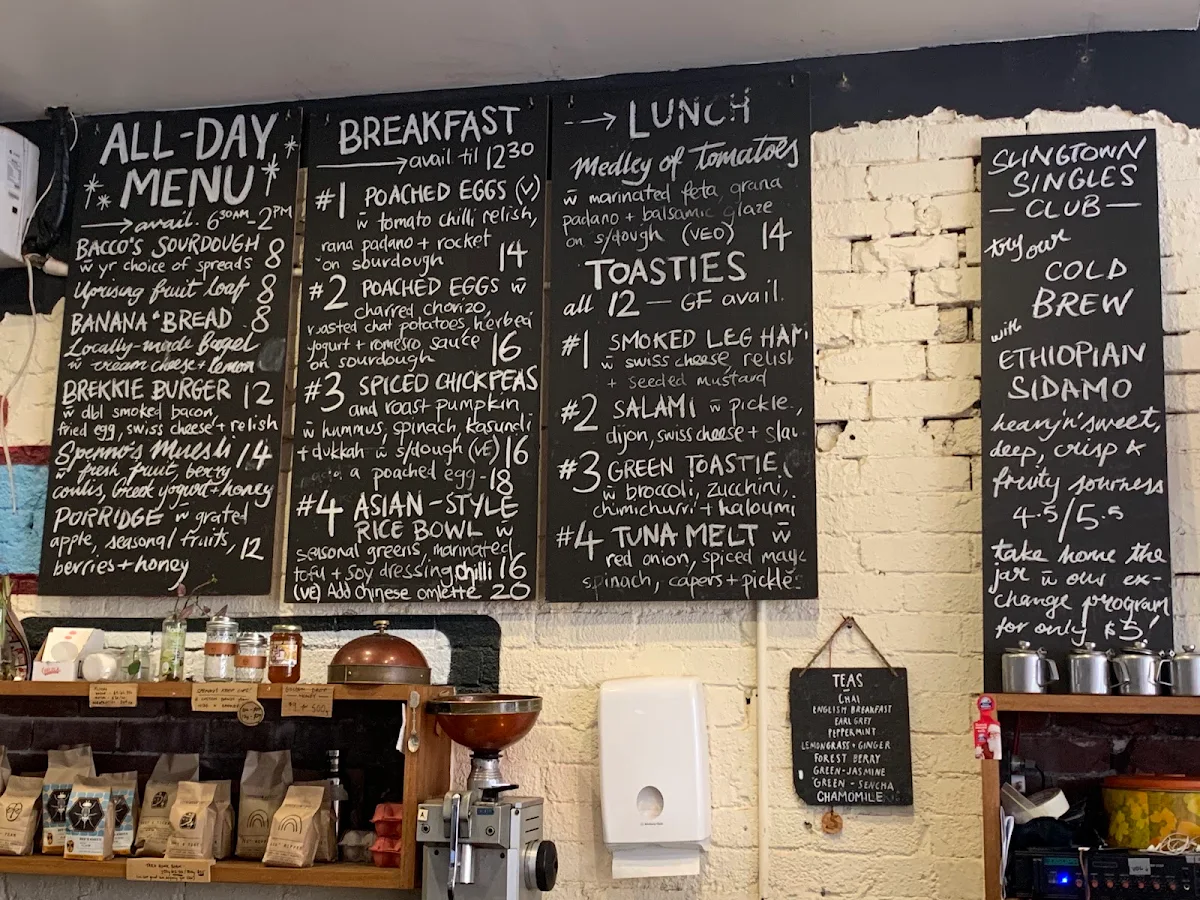 ALL-DAY
MENU
→ avail. 6³⁰AM - 2PM
BACCO'S SOURDOUGH 8
w̄ yr choice of spreads
Uprising fruit loaf 8
BANANA "BREAD" 8
Locally-made Bagel
w̄ cream cheese + lemon
BREKKIE BURGER 12
w̄ dbl smoked bacon,
fried egg, swiss cheese + relish
Sperno's Muesli 14
w̄ fresh fruit berry
coulis, Greek yogurt + honey
PORRIDGE w̄ grated
apple, seasonal fruits, 12
berries + honey
BREAKFAST
→ avail til 12³⁰
#1 POACHED EGGS (V)
w̄ tomato chilli relish,
rana padano + rocket
on sourdough 14
#2 POACHED EGGS w̄
charred chorizo,
roasted chat potatoes, herbed
yogurt + romesco sauce 16
on sourdough
#3 SPICED CHICKPEAS
and roast pumpkin
w̄ hummus, spinach, kasundi
+ dukkah w̄ s/dough (VE) 16
a poached egg - 18
#4 ASIAN-STYLE
RICE BOWL w̄
seasonal greens, marinated
tofu + soy dressing, chilli 16
(VE) Add chinese omlette 20
→ LUNCH
Medley of tomatoes
w̄ marinated feta, grana
padano + balsamic glaze
on s/dough (VEO) 14
TOASTIES
all 12 — GF avail.
#1 SMOKED LEG HAM
w̄ swiss cheese, relish
+ seeded mustard
#2 SALAMI w̄ pickle,
dijon, swiss cheese + slaw
#3 GREEN TOASTIE
w̄ broccoli, zucchini,
chimichurri + haloumi
#4 TUNA MELT w̄
red onion, spiced mayo
spinach, capers + pickle
SLINGTOWN
SINGLES
— CLUB —
try our
COLD
BREW
with
ETHIOPIAN
SIDAMO
heavy'n'sweet,
deep, crisp &
fruity sourness
4.5/5.5
take home the
jar w̄ our ex-
change program
for only $5!
TEAS
CHAI
ENGLISH BREAKFAST
EARL GREY
PEPPERMINT
LEMONGRASS + GINGER
FOREST BERRY
GREEN - JASMINE
GREEN - SENCHA
CHAMOMILE